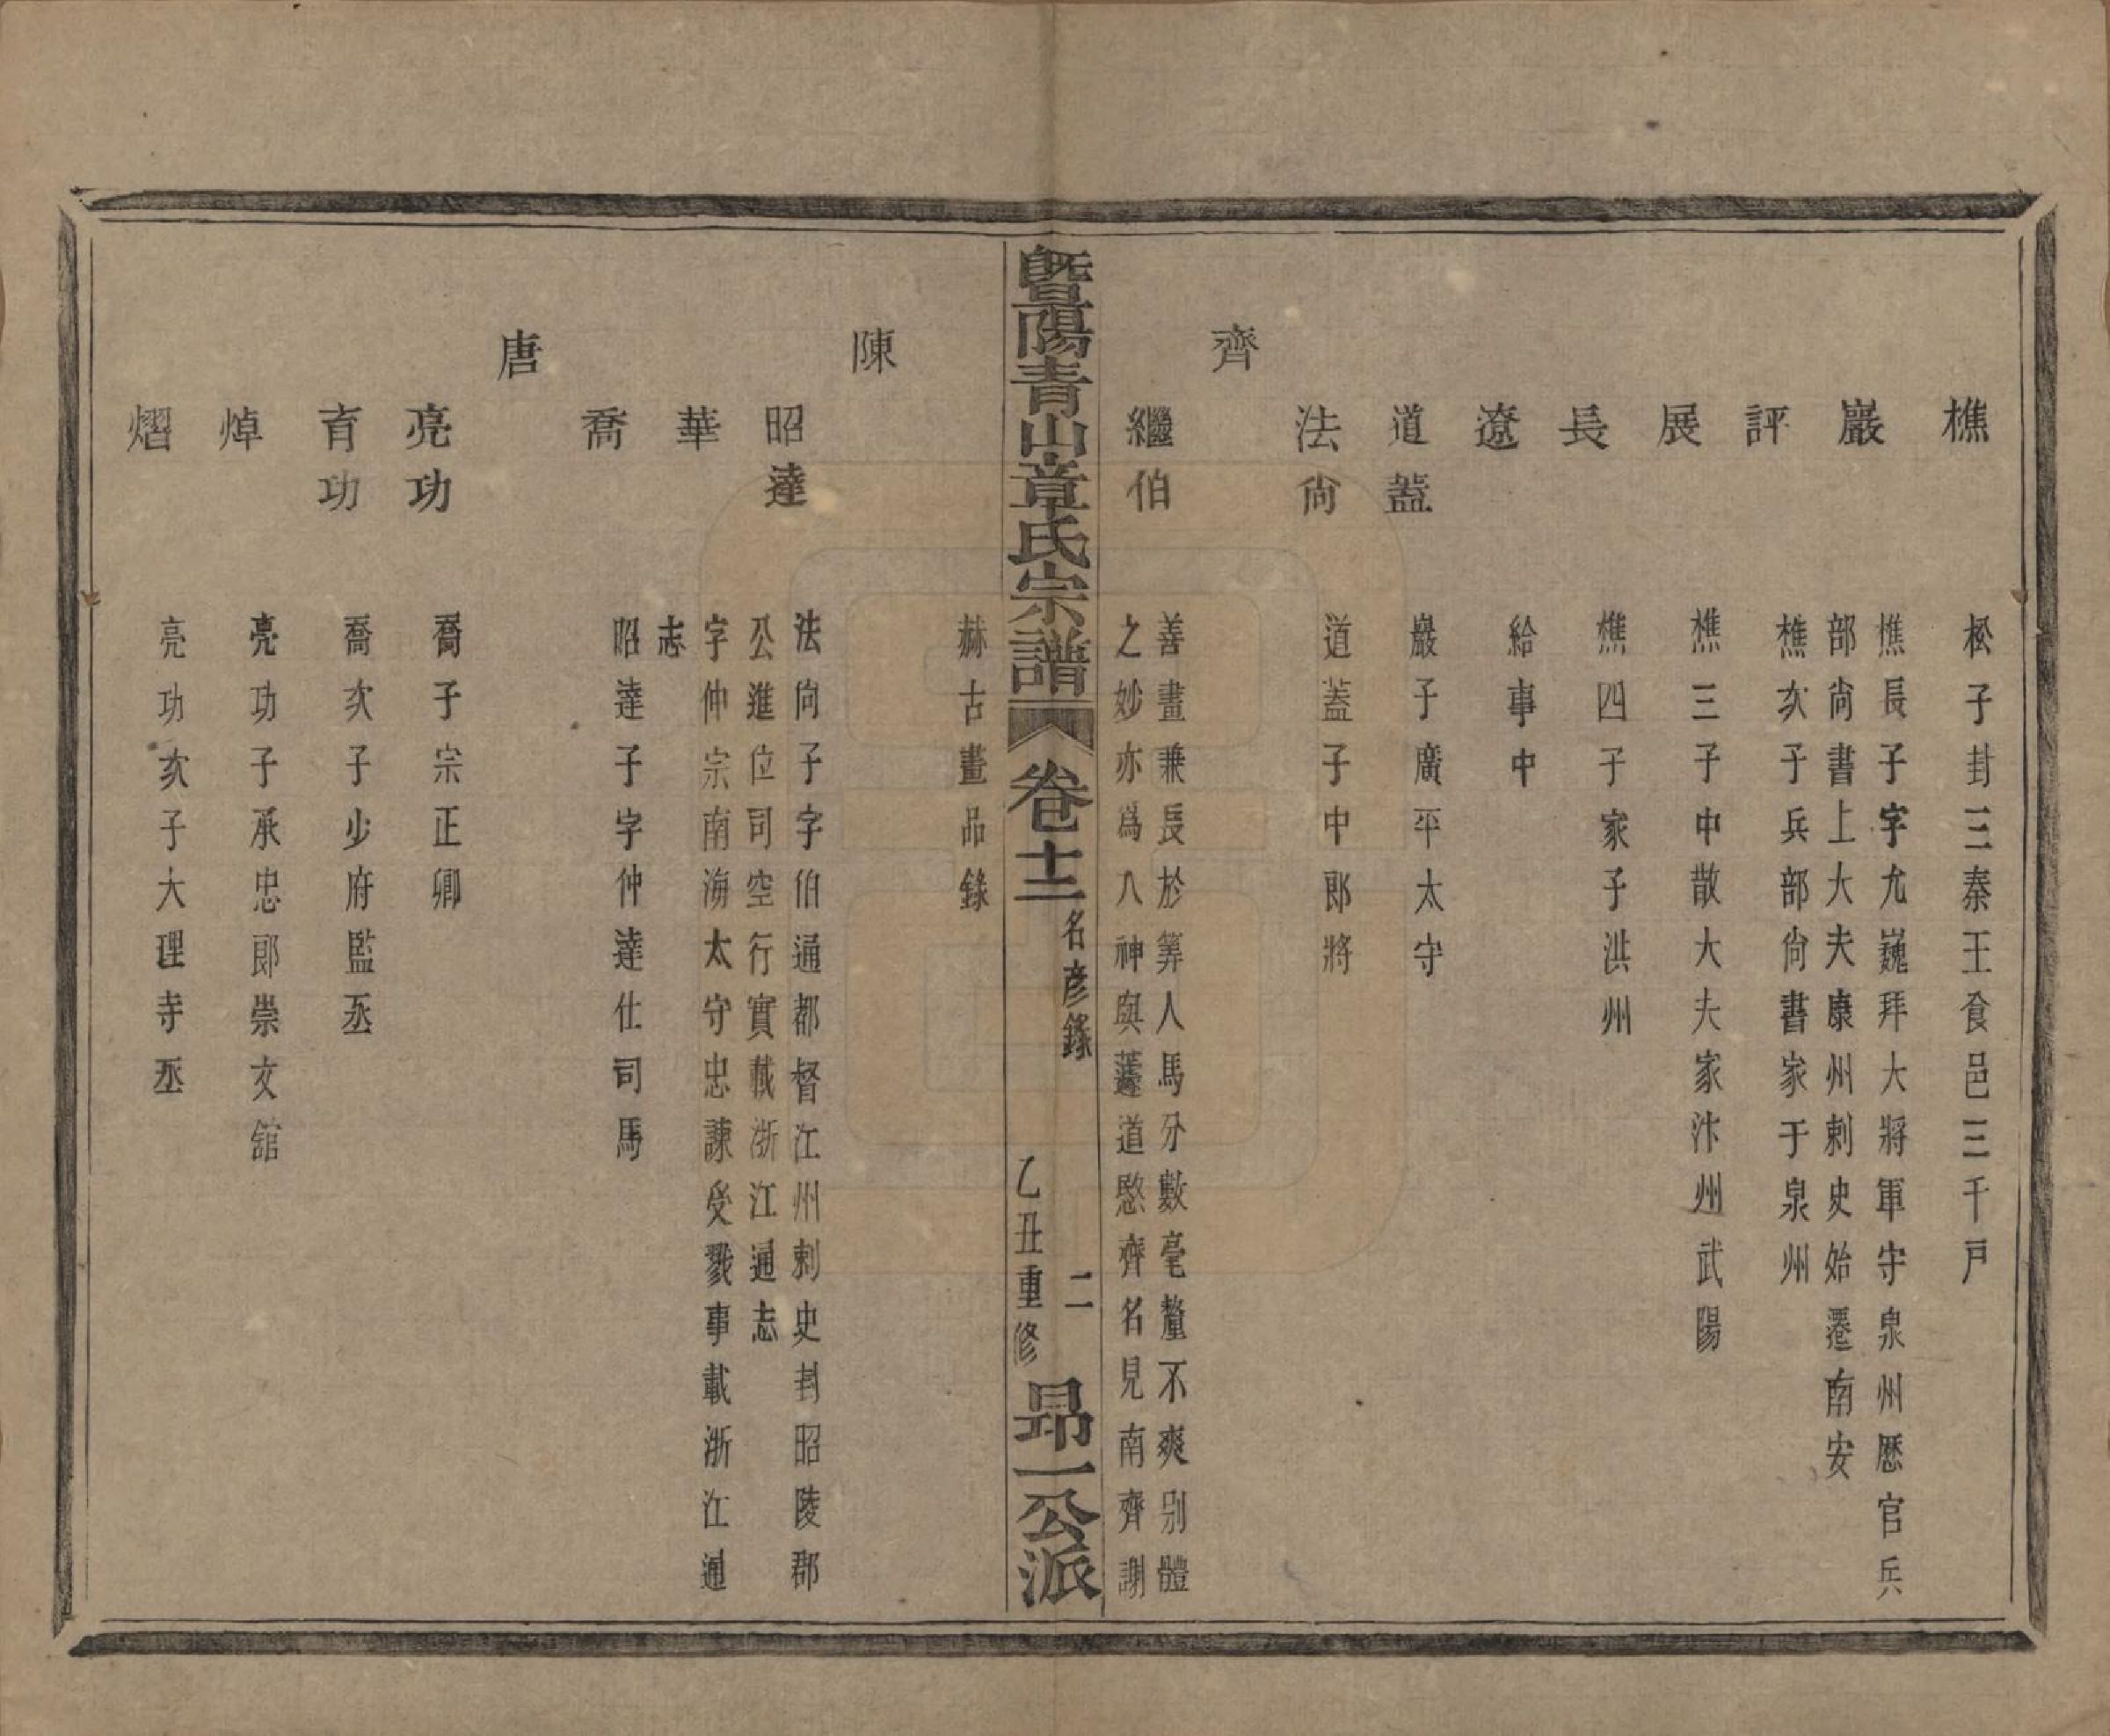 樵　松子封三秦王食邑三千戸
巖　樵長子字尤巍拜大將軍守泉州歷官兵
部尙書上大夫康州刺史始遷南安
評　樵次子兵部尙書家于泉州
展　樵三子中散大夫家汴州武陽
長　樵四子家子洪州
遼　給事中
道蓋　巖子廣平太守
法尙　道蓋子中郎將
齊
繼伯　善畫兼長於筭人馬分數毫釐不爽别體
之妙亦爲八神與蘧道愍齊名見南齊謝
暨陽青山章氏宗譜　卷十二　名彦錄　二　乙丑重修　昻一公派
赫古畫品錄
陳
昭達　法向子字伯通都督江州刺史封昭陵郡
公進位司空行實載浙江通志
華　字仲宗南海太守忠諫受戮事載浙江通
志
喬　昭達子字仲達仕司馬
唐
亮功　喬子宗正卿
育功　喬次子少府監丞
焯　亮功子承忠郞崇文舘
熠　亮功次子大理寺丞